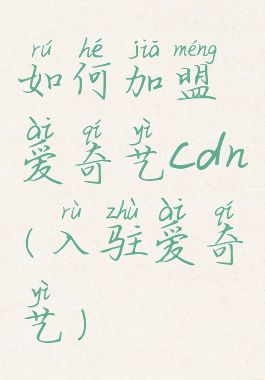 rú hé jiā méng
如何加盟
ài qí yì
爱奇艺cdn
rù zhù ài qí
(入驻爱奇
yì
艺)